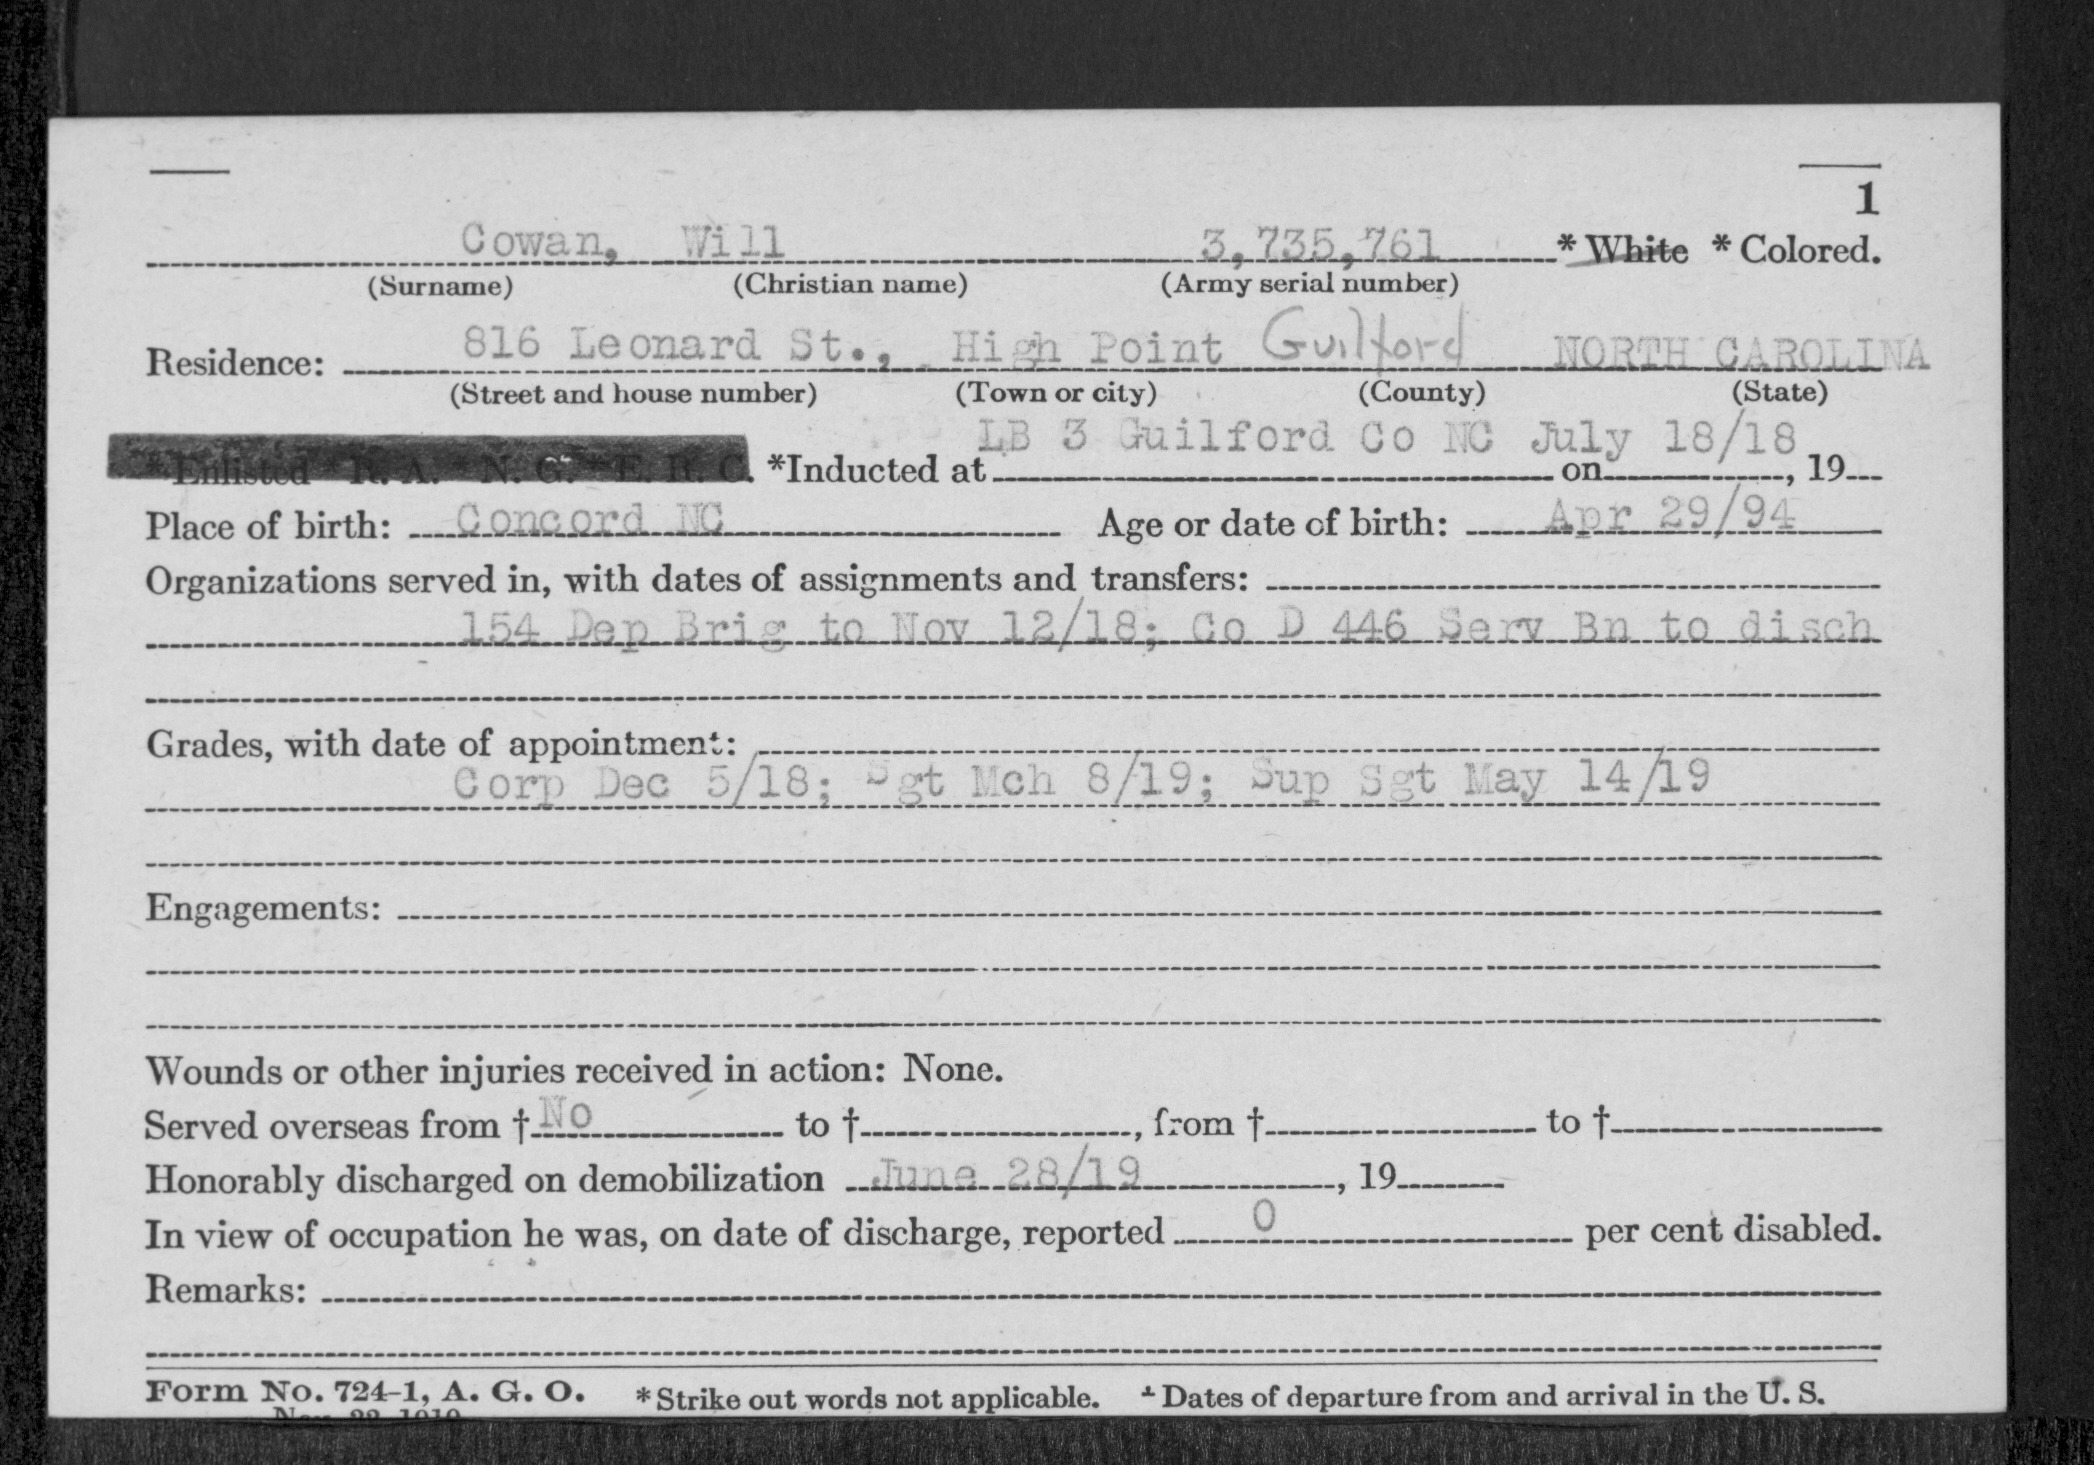 1
Cowan, Will 3,735,761 * White * Colored.
(Surname) (Christian name) (Army serial number)
Residence: 816 Leonard St., High Point Guilford NORTH CAROLINA
(Street and house number) (Town or city) (County) (State)
LB 3 Guilford Co NC July 18/18
*Enlisted *R. A. *N. G. *E. R. C. *Inducted at on , 19
Place of birth: Concord NC Age or date of birth: Apr 29/94
Organizations served in, with dates of assignments and transfers:
154 Dep Brig to Nov 12/18; Co D 446 Serv Bn to disch
Grades, with date of appointment:
Corp Dec 5/18; Sgt Mch 8/19; Sup Sgt May 14/19
Engagements:
Wounds or other injuries received in action: None.
Served overseas from † No to † , from † to †
Honorably discharged on demobilization June 28/19 , 19
In view of occupation he was, on date of discharge, reported 0 per cent disabled.
Remarks:
Form No. 724-1, A. G. O. *Strike out words not applicable. † Dates of departure from and arrival in the U. S.